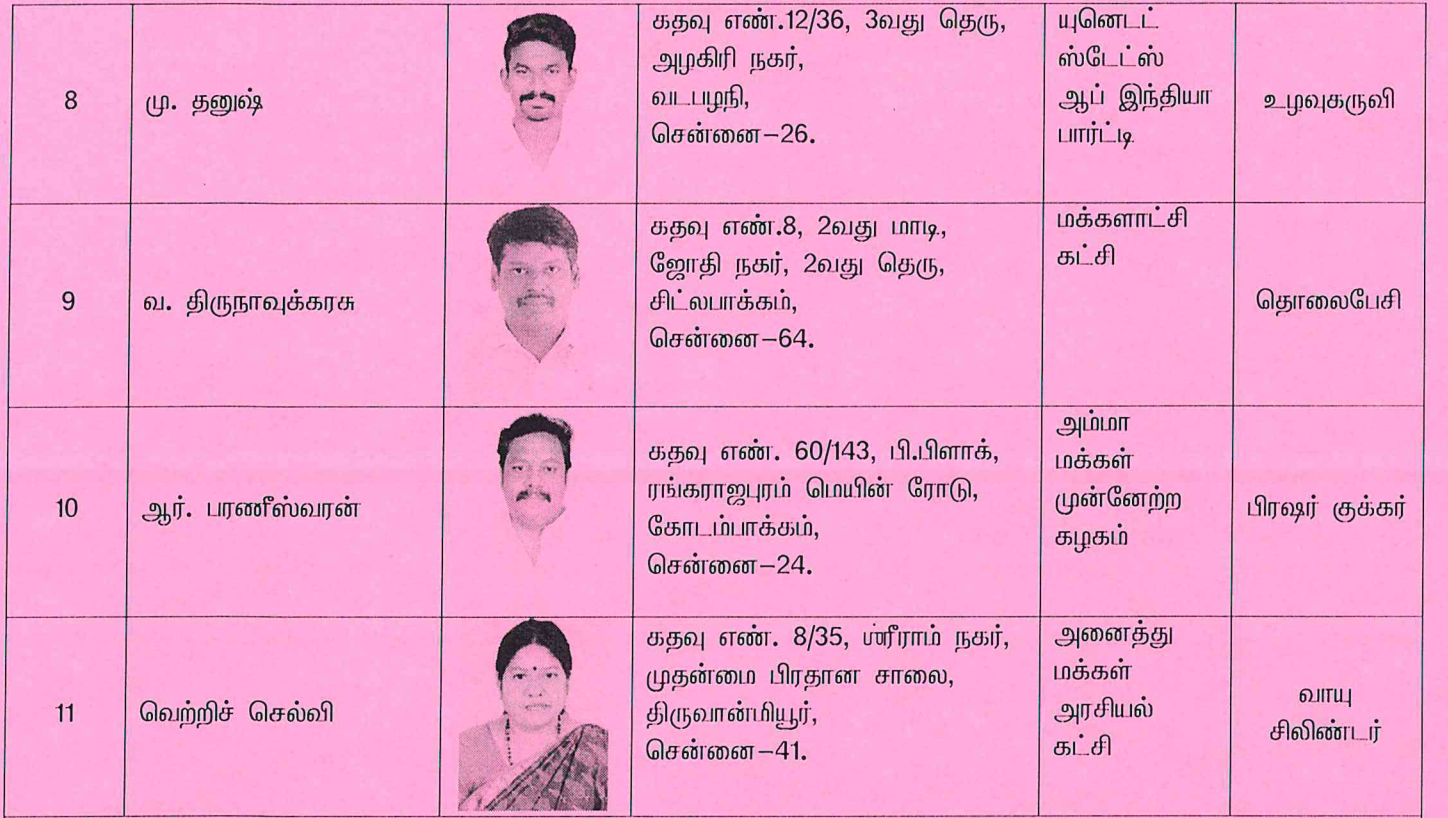 8
மு. தனுஷ்
கதவு எண்.12/36, 3வது தெரு,
அழகிரி நகர்,
வடபழநி,
சென்னை-26.
யுனெடட்
ஸ்டேட்ஸ்
ஆப் இந்தியா
பார்ட்டி
உழவுகருவி
9
வ. திருநாவுக்கரசு
கதவு எண்.8, 2வது மாடி,
ஜோதி நகர், 2வது தெரு,
சிட்லபாக்கம்,
சென்னை-64.
மக்களாட்சி
கட்சி
தொலைபேசி
10
ஆர். பரணீஸ்வரன்
கதவு எண். 60/143, பி.பிளாக்,
ரங்கராஜபுரம் மெயின் ரோடு,
கோடம்பாக்கம்,
சென்னை-24.
அம்மா
மக்கள்
முன்னேற்ற
கழகம்
பிரஷர் குக்கர்
11
வெற்றிச் செல்வி
கதவு எண். 8/35, ஸ்ரீராம் நகர்,
முதன்மை பிரதான சாலை,
திருவான்மியூர்,
சென்னை-41.
அனைத்து
மக்கள்
அரசியல்
கட்சி
வாயு
சிலிண்டர்